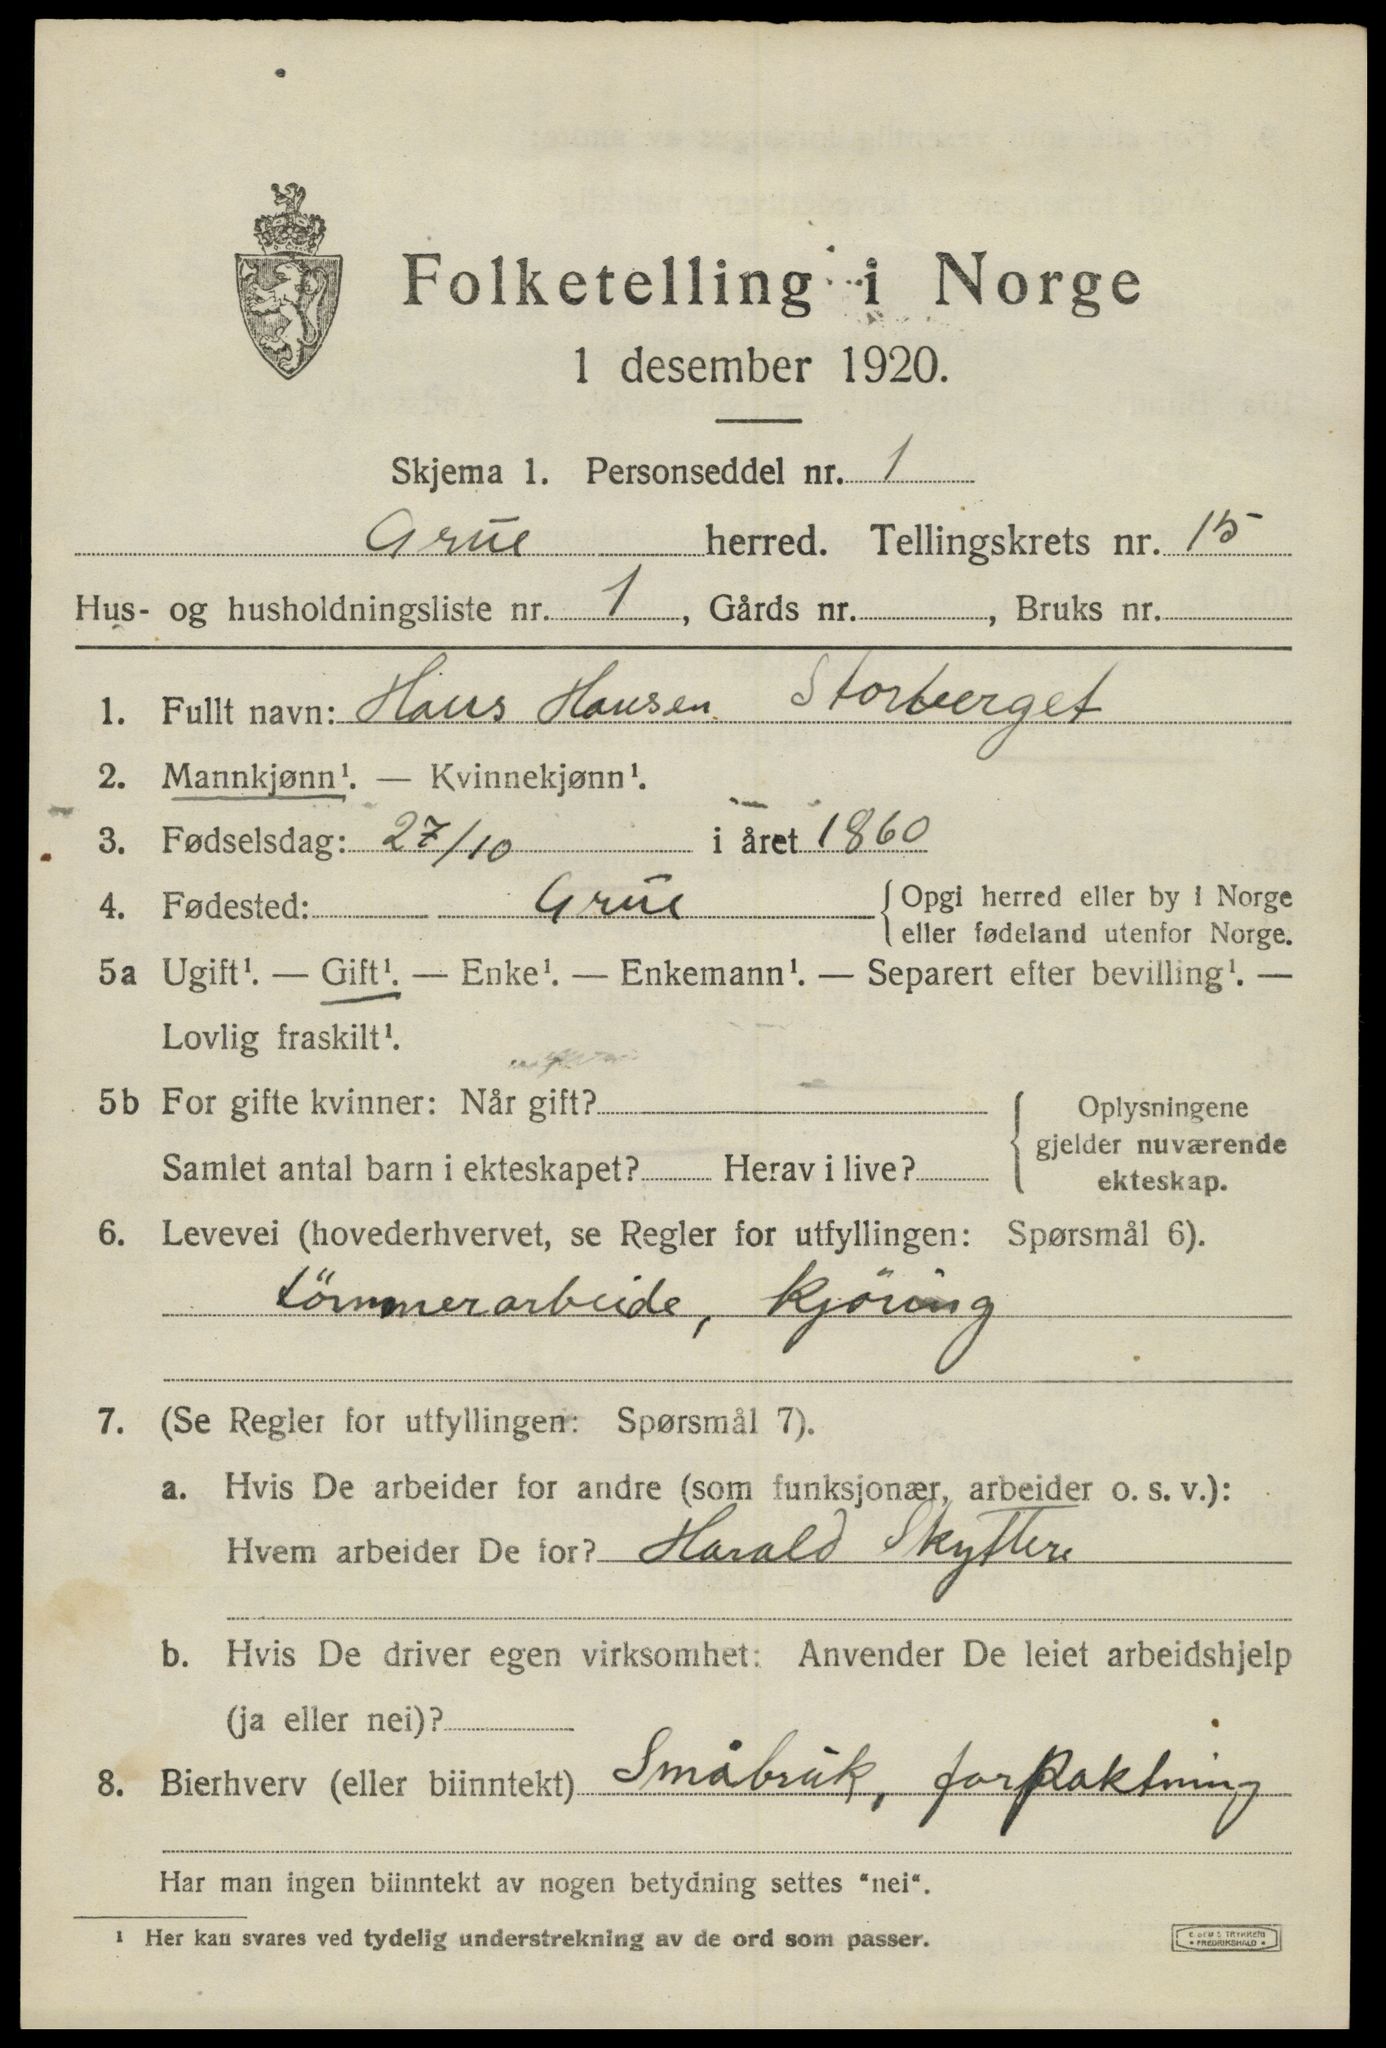 Folketelling i Norge
1 desember 1920.
Skjema 1. Personseddel nr. 1
Grue herred. Tellingskrets nr. 15
Hus- og husholdningsliste nr. 1, Gårds nr. , Bruks nr.
1. Fullt navn: Hans Hansen Storberget
2. Mannkjønn¹. — Kvinnekjønn¹.
3. Fødselsdag: 27/10 i året 1860
4. Fødested: Grue { Opgi herred eller by i Norge
eller fødeland utenfor Norge.
5a Ugift¹. — Gift¹. — Enke¹. — Enkemann¹. — Separert efter bevilling¹. —
Lovlig fraskilt¹.
5b For gifte kvinner: Når gift? { Oplysningene
gjelder nuværende
Samlet antal barn i ekteskapet? Herav i live? ekteskap.
6. Levevei (hovederhvervet, se Regler for utfyllingen: Spørsmål 6).
tömmerarbeide, kjöring
7. (Se Regler for utfyllingen: Spørsmål 7).
a. Hvis De arbeider for andre (som funksjonær, arbeider o. s. v.):
Hvem arbeider De for? Harald Skyttere
b. Hvis De driver egen virksomhet: Anvender De leiet arbeidshjelp
(ja eller nei)?
8. Bierhverv (eller biinntekt) Småbruk, forpaktning
Har man ingen biinntekt av nogen betydning settes "nei".
¹ Her kan svares ved tydelig understrekning av de ord som passer.
TRYKKERI
FREDRIKSHALD